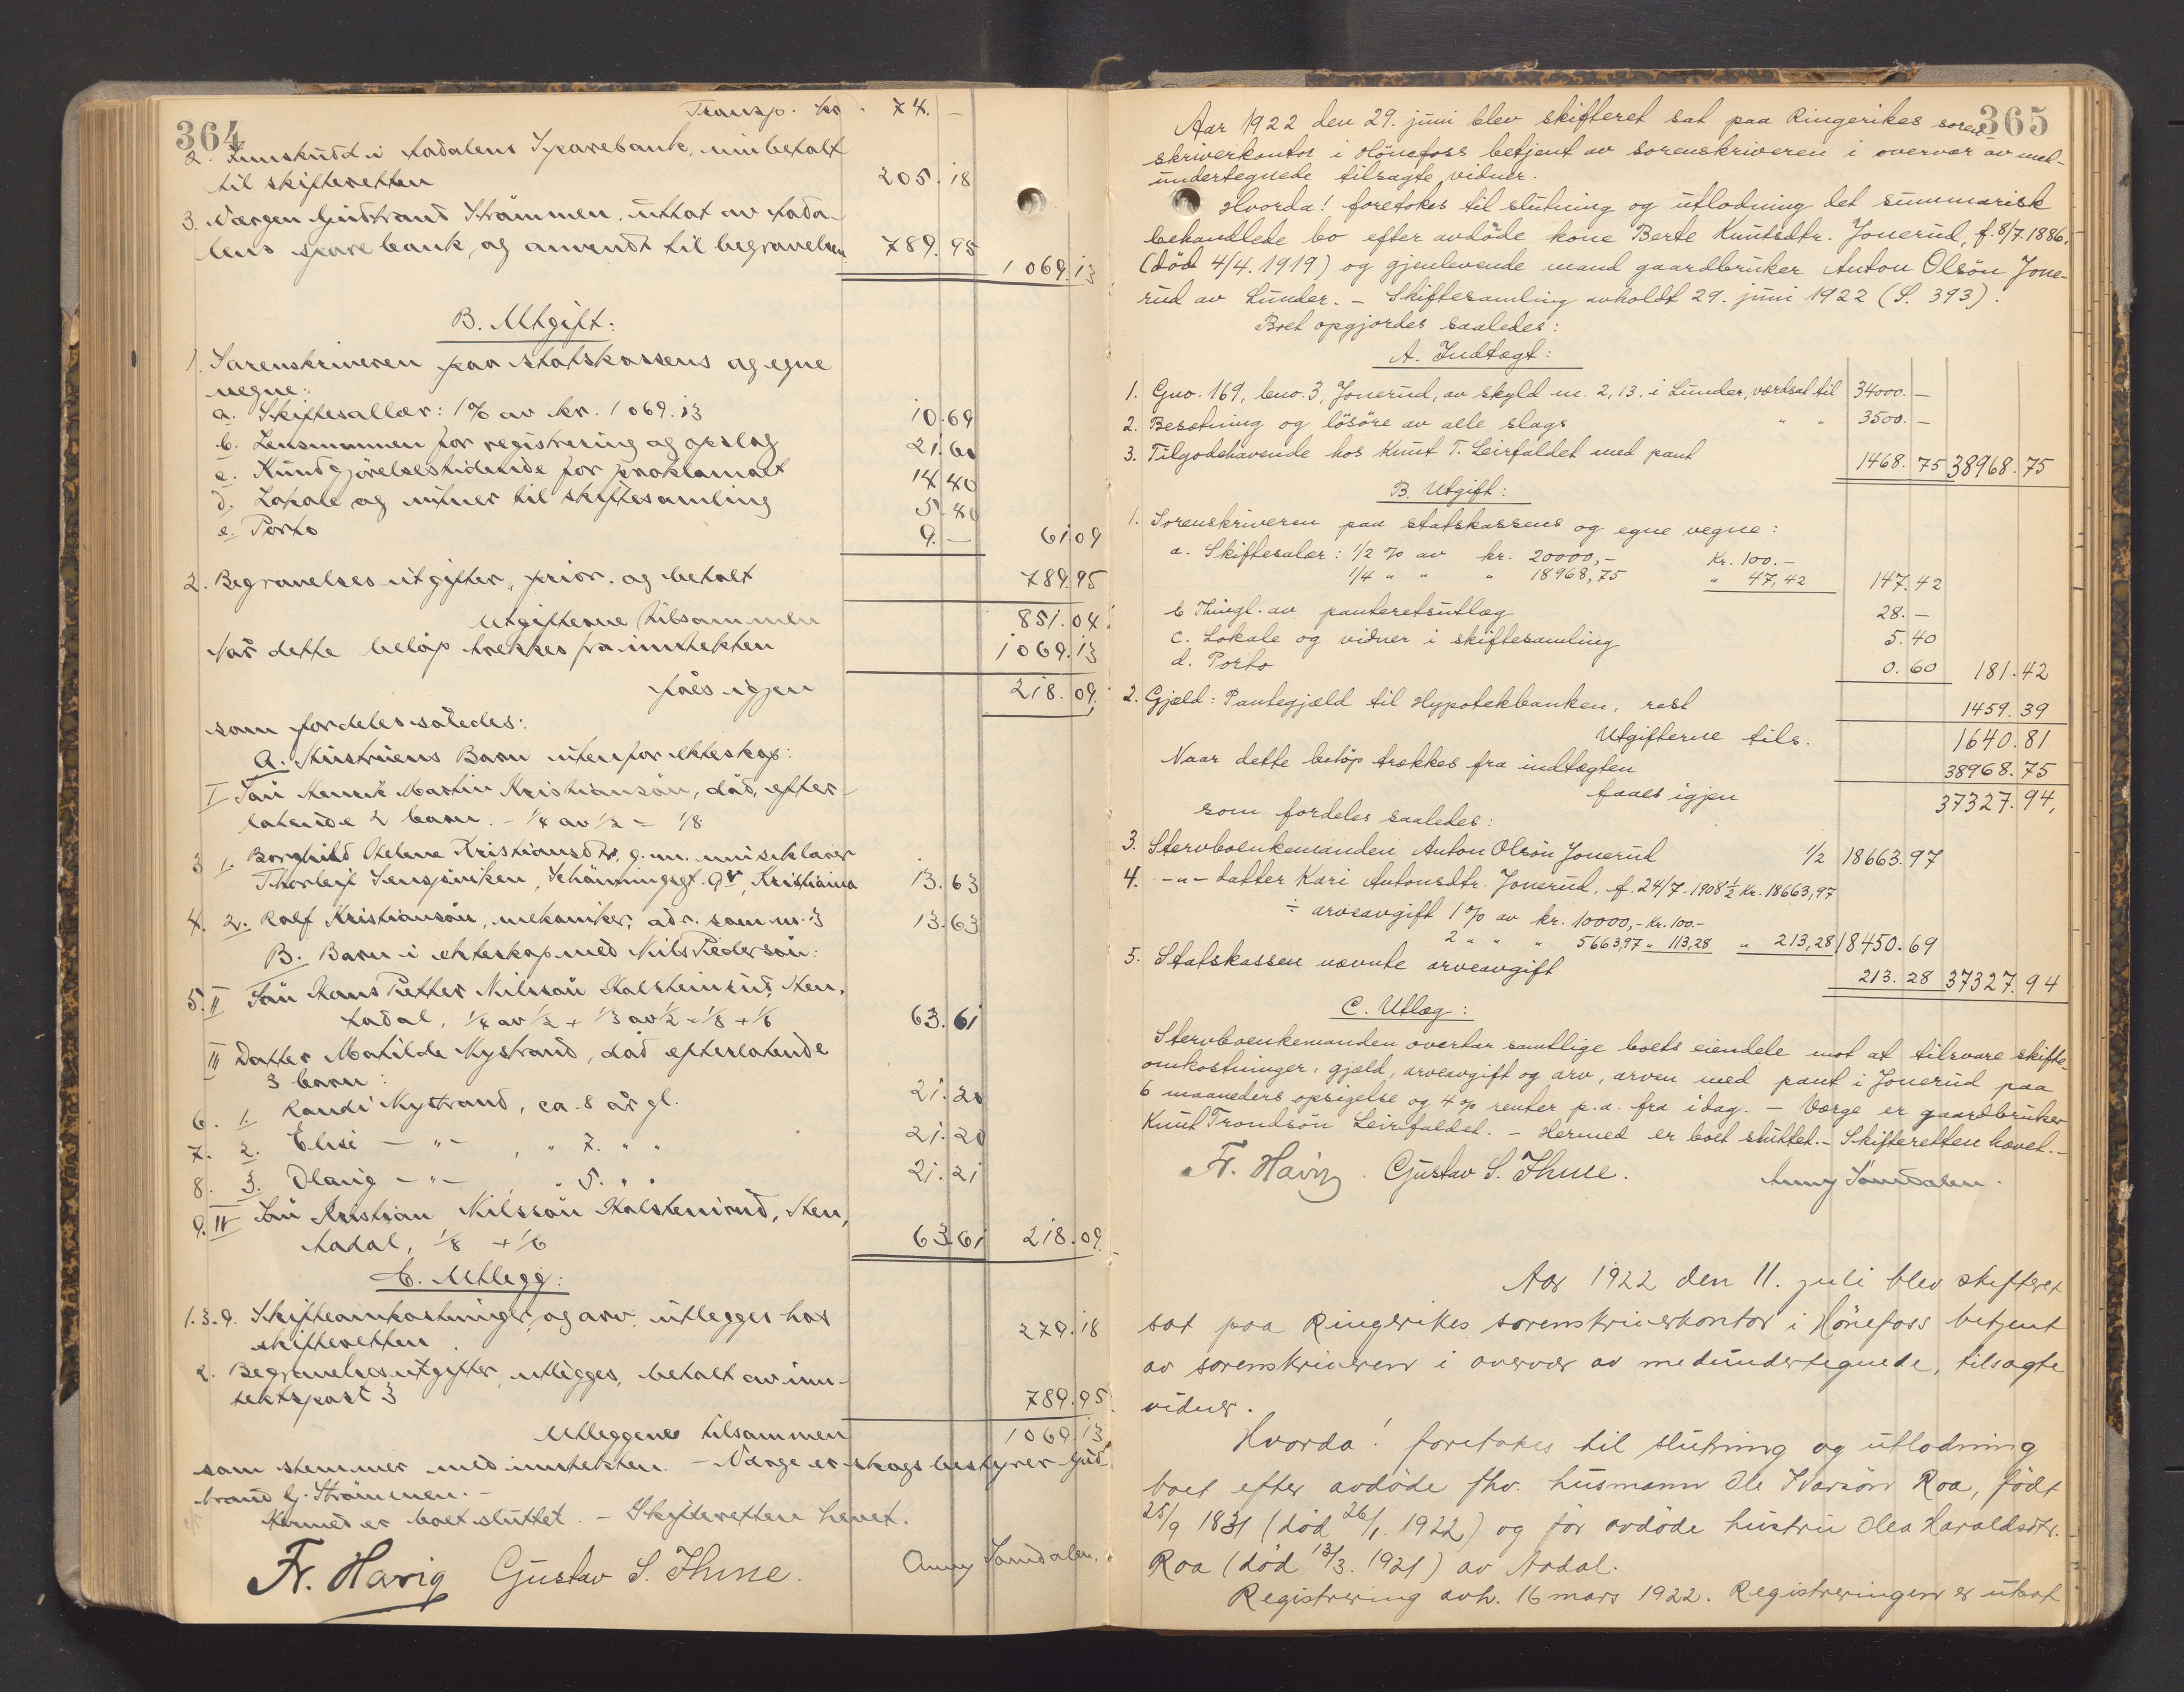 364
Transp. kr. 74. –
2. Innskudd i Aadalens Sparebank, innbetalt
til skifteretten 205.18
3. Værgen Gudbrand Strømmen, uttat av Aada-
lens sparebank og anvendt til begravelsen 789.95 1069.13
B. Utgift:
1. Sorenskriveren paa statskassens og egne
vegne:
a. Skiftesallær: 1% av kr. 1069.13 10.69
b. Lensmannen for registrering og opslag 21.60
c. Kundgjørelsestidende for proklamaet 14.40
d. Lokale og vitner til skiftesamling 5.40
e. Porto 9. – 61.09
2. Begravelsesutgifter, prior. og betalt 789.95
Utgifterne tilsammen 851.04
Når dette beløp trekkes fra inntekten 1069.13
fåes igjen 218.09
som fordeles således:
A. Hustruens Barn utenfor ekteskap:
I Søn Henrik Martin Kristiansøn, død, efter-
latende 2 barn. – 1/4 av 1/2 = 1/8
3 1. Borghild Helene Kristiansdtr, g.m.
Thorleif Kristiania 13.63
4. 2. Ralf Kristiansøn, mekaniker, adr. som nr. 3 13.63
B. Barn i ekteskap med Nils Pedersøn:
5. II Søn Hans Petter Nilssøn Kalsteinrud, Ren,
Aadal, 1/4 av 1/2 + 1/3 av 1/2 = 1/8 + 1/6 63.61
III Datter Matilde Nystrand, død efterlatende
3 barn:
6. 1. Randi Nystrand, ca. 8 år gl. 21.20
7. 2. Elsi – " – , " 7. " " 21.20
8. 3. Olaug – " – , " 5. " " 21.21
9. IV Søn Kristian Nilssøn Kalsteinrud, Ren,
Aadal, 1/8 + 1/6 63.61 218.09
C. Utlegg:
1.3-9. Skifteomkostninger og arv utlegges hos
skifteretten 279.18
2. Begravelsesutgifter utlegges, betalt av inn-
tektspost 3 789.95
Utleggene tilsammen 1069.13
som stemmer med inntekten. – Værge er skogsbestyrer Gud-
brand G. Strømmen. –
Hermed er boet sluttet. – Skifteretten hevet.
Fr. Havig Gustav S. Thune. Anny Samdalen.
365
Aar 1922 den 29. juni blev skifteret sat paa Ringerikes soren-
skriverkontor i Hönefoss betjent av sorenskriveren i overvær av med-
undertegnede tilsagte vidner.
Hvorda! foretokes til slutning og utlodning det summarisk
behandlede bo efter avdöde kone Berte Knutsdtr. Jonerud, f. 8/7.1886,
(död 4/4.1919) og gjenlevende mand gaardbruker Anton Olsön Jone-
rud av Lunder. – Skiftesamling avholdt 29. juni 1922 (S. 393).
Boet opgjordes saaledes:
A. Indtægt:
1. Gno. 169, bno. 3, Jonerud, av skyld m. 2,13, i Lunder, værdsat til 34000. –
2. Besetning og lösöre av alle slags " " 3500. –
3. Tilgodehavende hos Knut T. Leirfaldet med pant 1468.75 38968.75
B. Utgift:
1. Sorenskriveren paa statskassens og egne vegne:
a. Skiftesalær: 1/2 % av kr. 20000,– Kr. 100.–
1/4 " " " 18968,75 " 47,42 147.42
b Thingl. av panteretsutlæg 28. –
c. Lokale og vidner i skiftesamling 5.40
d. Porto 0.60 181.42
2. Gjæld: Pantegjæld til Hypotekbanken, rest 1459.39
Utgifterne tils. 1640.81
Naar dette belöp trækkes fra indtægten 38968.75
faaes igjen 37327.94,
som fordeles saaledes:
3. Stervboenkemanden Anton Olsön Jonerud 1/2 18663.97
4. – " – datter Kari Antonsdtr. Jonerud, f. 24/7.1908 1/2 Kr. 18663,97
÷ arveavgift 1% av kr. 10000,– Kr. 100.–
2 " " " 5663,97 " 113,28 " 213,28 18450.69
5. Statskassen nævnte arveavgift 213.28 37327.94
C. Utlæg:
Stervboenkemanden overtar samtlige boets eiendele mot at tilsvare skifte-
omkostninger, gjæld, arveavgift og arv, arven med pant i Jonerud paa
6 maaneders opsigelse og 4% renter p.a. fra idag. – Værge er gaardbruker
Knut Trondsön Leirfaldet. – Hermed er boet sluttet. – Skifteretten hævet. –
Fr. Havig. Gustav S. Thune. Anny Samdalen.
Aar 1922 den 11. juli blev skifteret
sat paa Ringerikes sorenskriverkontor i Hönefoss betjent
av sorenskriveren i overvær av medundertegnede, tilsagte
vidner.
Hvorda! foretokes til slutning og utlodning
boet efter avdöde fhv. husmann Ole Ivarsön Roa, födt
25/9 1831 (död 26/1. 1922) og för avdöde hustru Olea Haraldsdtr.
Roa (död 13/3. 1921) av Aadal.
Registrering avh. 16 mars 1922. Registreringen er utsat